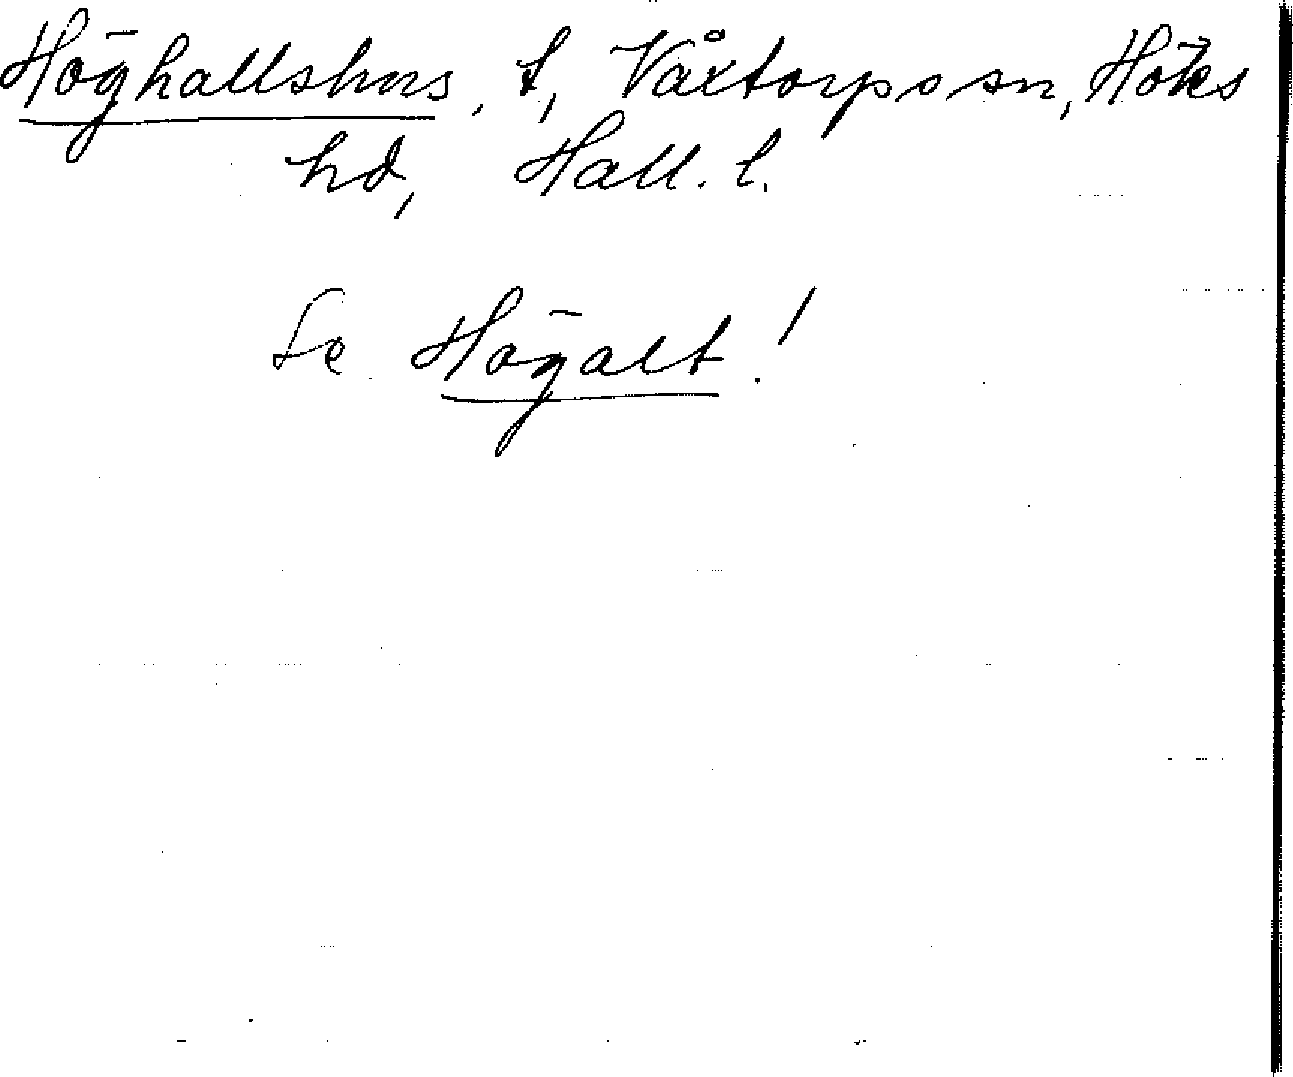 Höghallshus, t, Våxtorps sn, Höks
hd, Hall. l.
Se Högalt!